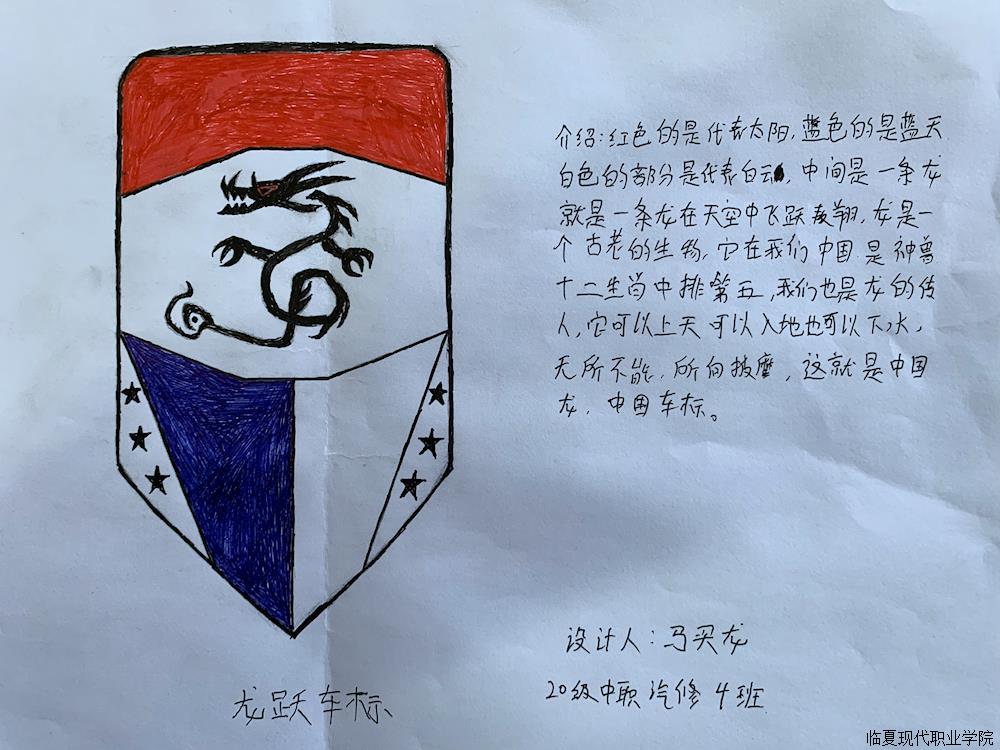 介绍:红色的是代表太阳,蓝色的是蓝天
白色的部分是代表白云,中间是一条龙
就是一条龙在天空中飞跃 翔,龙是一
个古老的生物,它在我们中国是神兽
十二生肖中排第五,我们也是龙的传
人,它可以上天可以入地也可以下水,
无所不能,所向披靡,这就是中国
龙,中国车标。
设计人:马买龙
20级中职汽修4班
龙跃车标
临夏现代职业学院